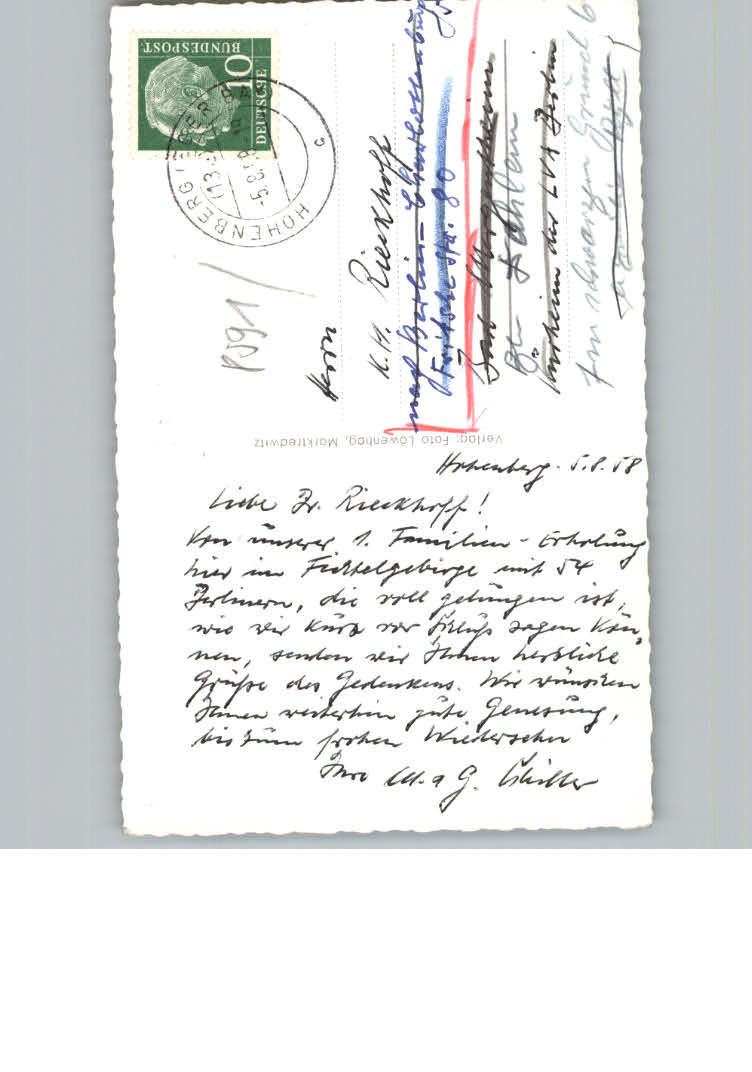 DEUTSCHE
BUNDESPOST
10
HOHENBERG
-5.8.58
P591
Herrn
K.H. Rieckhoff
nach Berlin-Charlottenburg
Fritschestr. 80
Bad Mergentheim
Bl- Dahlem
Kurheim der LVA Berlin
Im schwarzen Grund 6
Verlag: Foto Löwenhag, Marktredwitz
Hohenberg. 5.8.58
Liebe Br. Rieckhoff!
Von unserer 1. Familien-Erholung
hier im Fichtelgebirge mit 54
Berlinern, die voll gelungen ist,
wie wir kurz vor Schluß sagen kön-
nen, senden wir Ihnen herzliche
Grüße des Gedenkens. Wir wünschen
Ihnen weiterhin gute Genesung,
bis zum frohen Wiedersehn
Ihre M. u G.